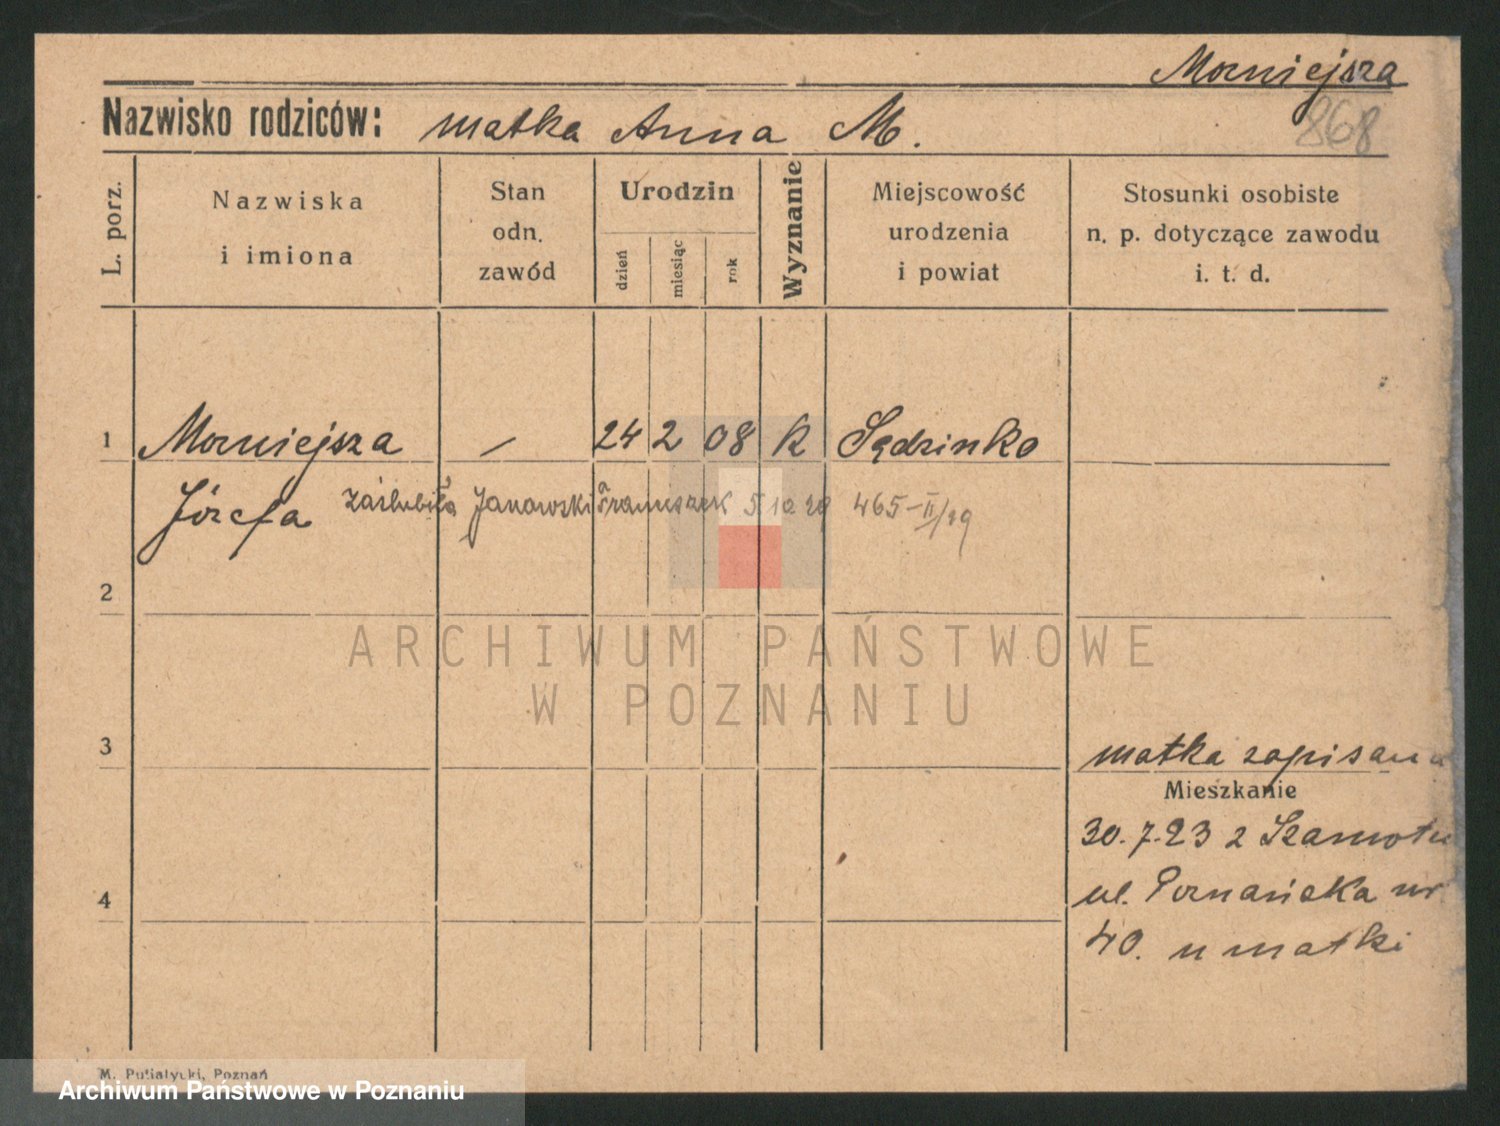 Morniejsza
868
Nazwisko rodziców: matka Anna M.
L. porz.
Nazwiska
i imiona
Stan
odn.
zawód
Urodzin
dzień
miesiąc
rok
Wyznanie
Miejscowość
urodzenia
i powiat
Stosunki osobiste
n. p. dotyczące zawodu
i. t. d.
1 Morniejsza — 24 2 08 k Sędzinko
Józefa zaślubiła Janowski Franciszek 5 10 29 465-II/29
2
ARCHIWUM PAŃSTWOWE
W POZNANIU
3
matka zapisana
Mieszkanie
30.7.23 z Szamotu
4
ul. Poznańska nr
40. u matki
M. Putiatycki, Poznań
Archiwum Państwowe w Poznaniu